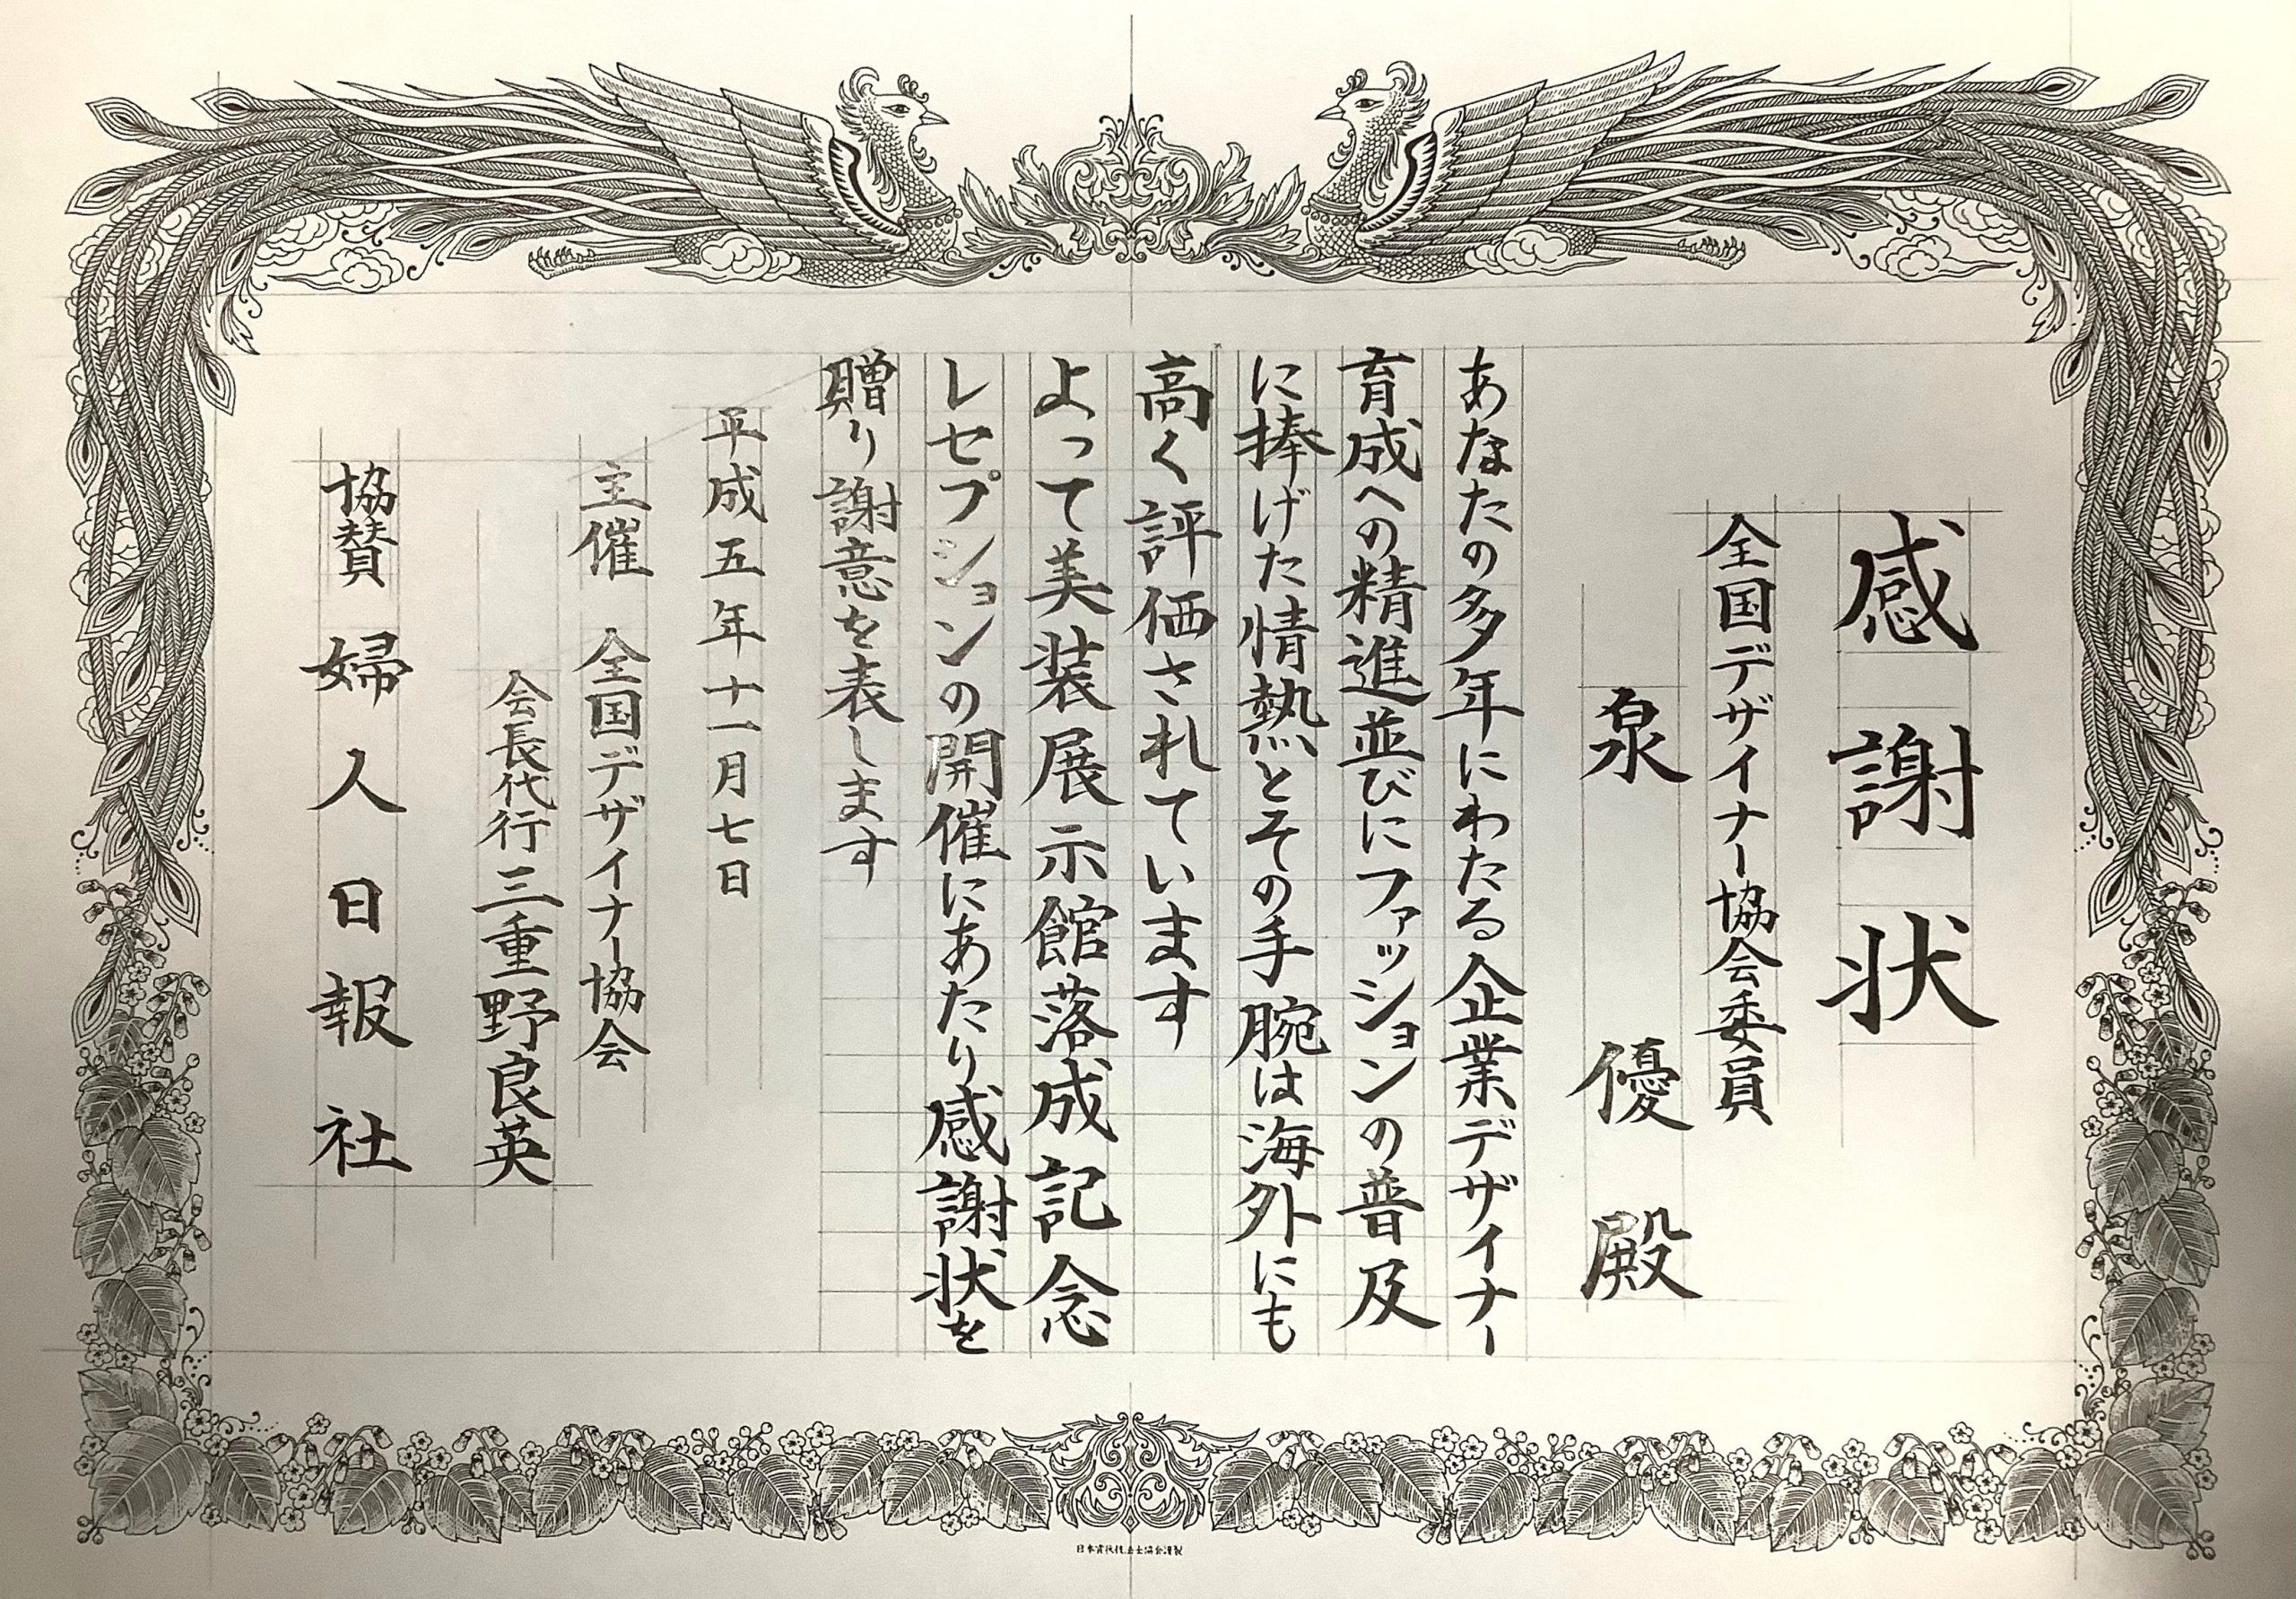 感謝状
全国デザイナー協会委員
泉 優 殿
あなたの多年にわたる企業デザイナー
育成への精進並びにファッションの普及
に捧げた情熱とその手腕は海外にも
高く評価されています
よって美装展示館落成記念
レセプションの開催にあたり感謝状を
贈り謝意を表します
平成五年十一月七日
主催 全国デザイナー協会
会長代行 三重野良英
協賛 婦人日報社